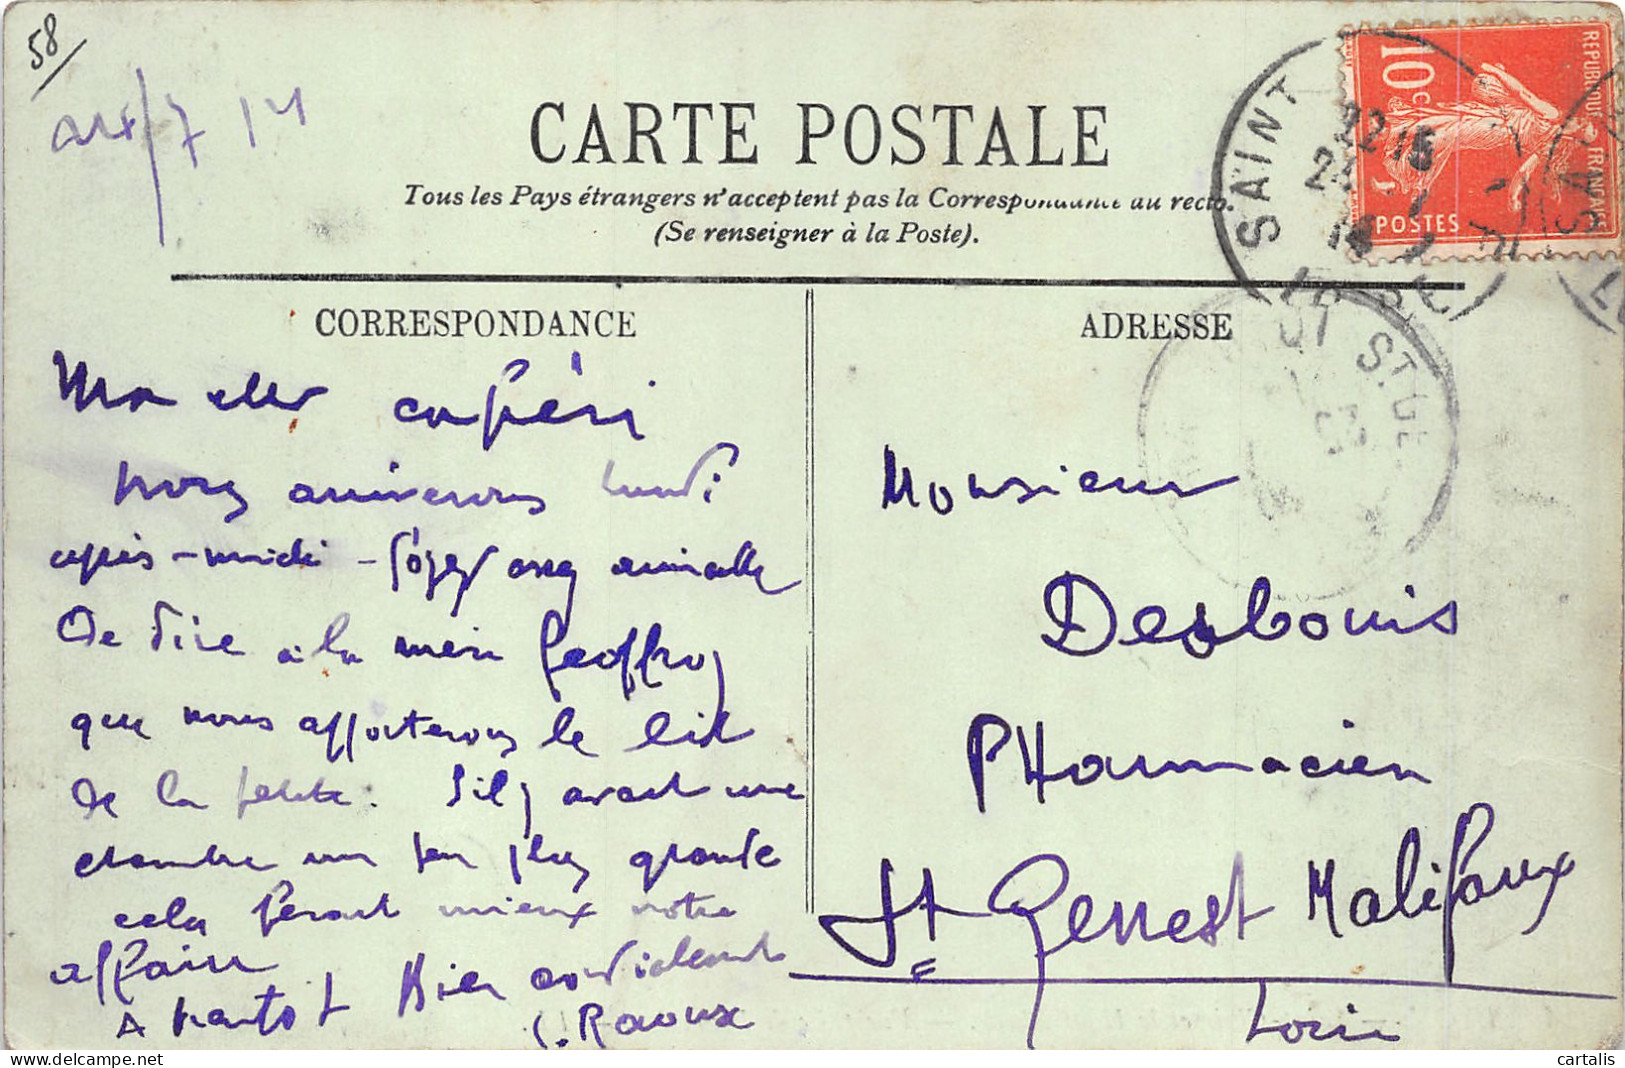 58
7 14
CARTE POSTALE
Tous les Pays étrangers n'acceptent pas la Correspondance au recto.
(Se renseigner à la Poste).
10 c
REPUBLIQUE FRANÇAISE
POSTES
SAINT
22 15
14
CORRESPONDANCE
ADRESSE
ST GE
Mon cher
nous arriverons lundi
après-midi - Soyez assez aimable
de dire à la mère Geoffroy
que nous apporterons le lit
de la petite. S'il y avait une
chambre un peu plus grande
cela ferait mieux notre
affaire
A bientôt Bien cordialement
C. Raoux
Monsieur
Desbouis
PHarmacien
St Genest Malifaux
Loire
cartalis